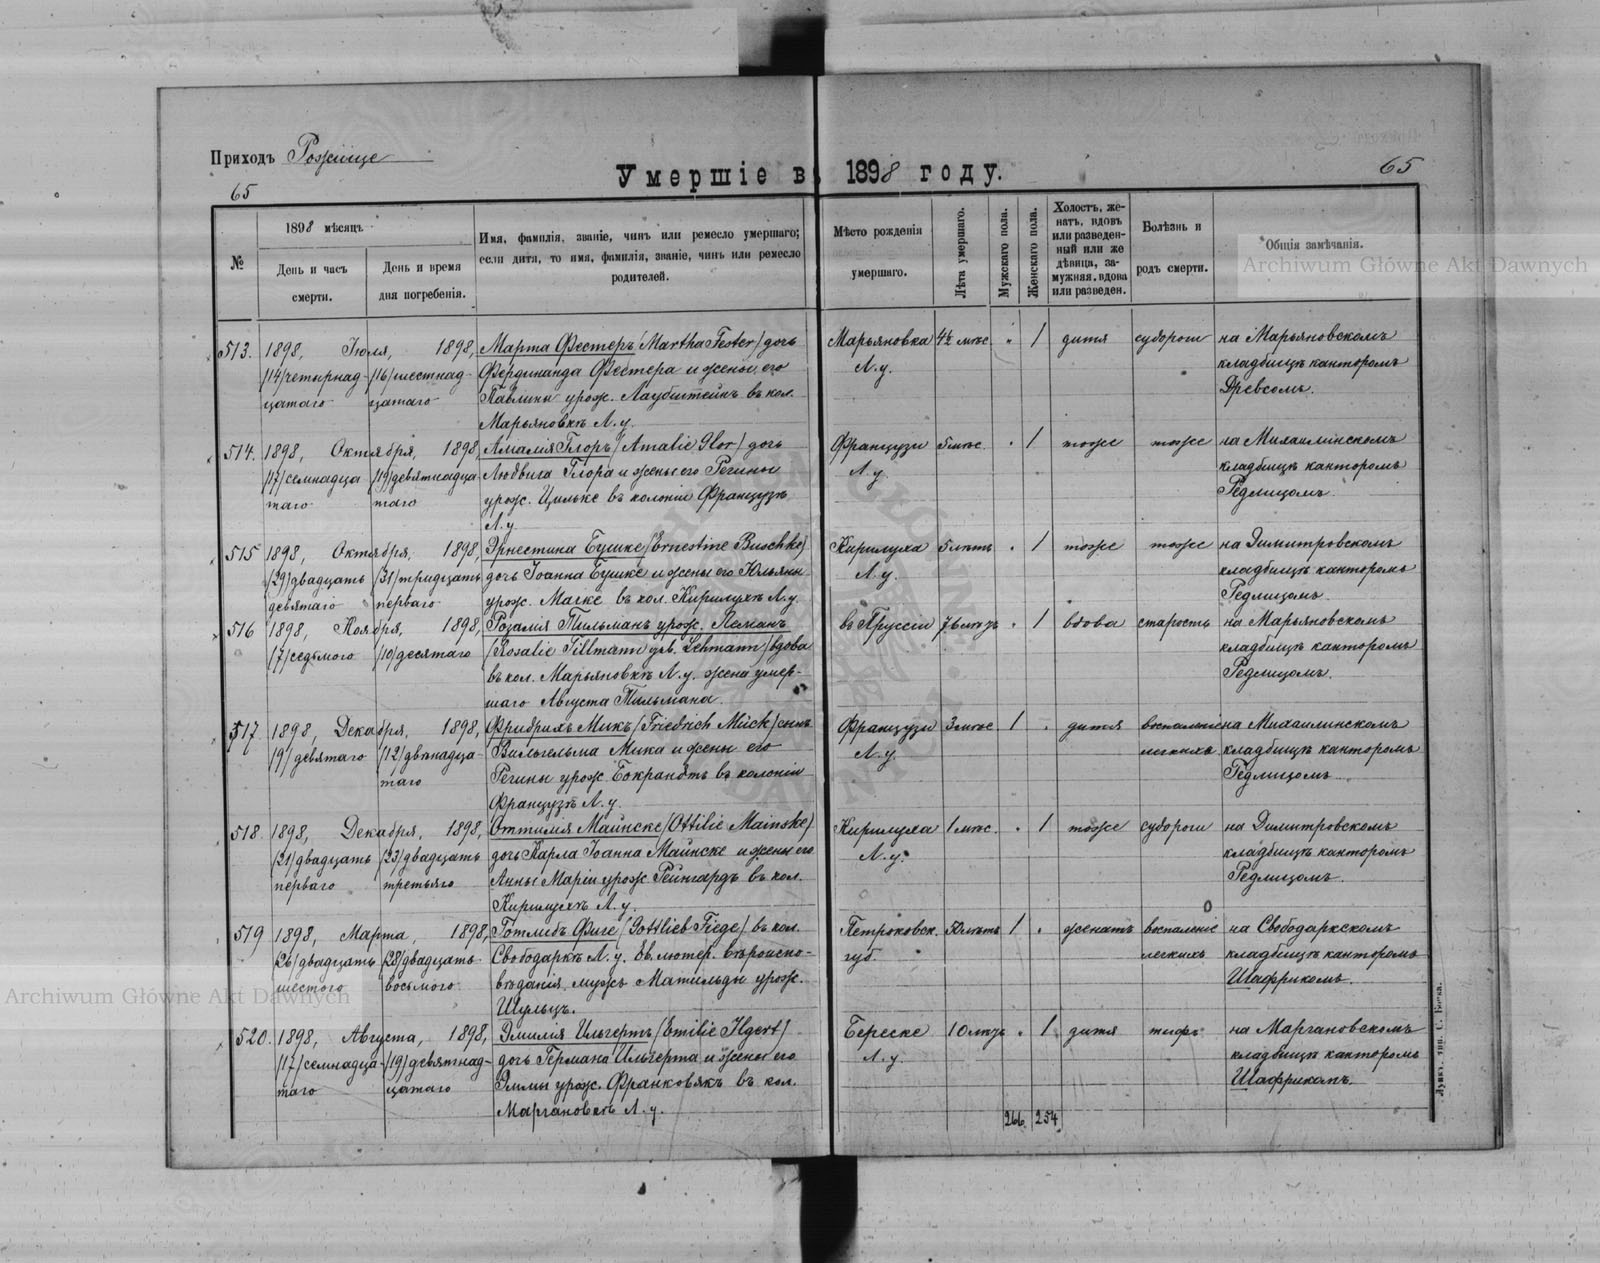 Приходъ Рожище
65
Умершіе въ 1898 году.
65
№
1898 мѣсяцъ
День и часъ смерти.
День и время дня погребенія.
Имя, фамилія, званіе, чинъ или ремесло умершаго; если дитя, то имя, фамилія, званіе, чинъ или ремесло родителей.
Мѣсто рожденія умершаго.
Лѣта умершаго.
Мужскаго пола.
Женскаго пола.
Холостъ, женатъ, вдовъ или разведенный или же дѣвица, замужняя, вдова или разведен.
Болѣзнь и родъ смерти.
Общія замѣчанія.
Archiwum Główne Akt Dawnych
513. 1898, Іюля, 1898, Марта Фестеръ /Martha Fester/ дочь Марьяновка 4½ мѣс. " 1 дитя судороги на Марьяновскомъ
/14/четырнад- /16/шестнад- Фердинанда Фестера и жены его Л. у. кладбищѣ канторомъ
цатаго цатаго Павлины урож. Лаубштейнъ въ кол. Древсомъ.
Марьяновкѣ Л. у.
514. 1898, Октября, 1898, Амалія Глоръ /Amalie Glor/ дочь Французы 5 мѣс. " 1 тоже тоже на Михаилинскомъ
/17/семнадца /19/девятнадца Людвига Глора и жены его Регины Л. у. кладбищѣ канторомъ
таго таго урож. Цильке въ колоніи Французѣ Редлицомъ.
Л. у.
515 1898, Октября, 1898, Эрнестина Бушке /Ernestine Buschke/ Кирилуха 5 лѣтъ " 1 тоже тоже на Димитровскомъ
/29/двадцать /31/тридцать дочь Іоанна Бушке и жены его Юльяны Л. у. кладбищѣ канторомъ
девятаго перваго урож. Магке въ кол. Кирилухѣ Л. у. Редлицомъ.
516 1898, Ноября, 1898, Розалія Тильманъ урож. Леманъ въ Пруссіи " 1 вдова старость на Марьяновскомъ
/7/седьмого /10/десятаго /Rosalie Tillmann geb. Lehmann/ вдова кладбищѣ канторомъ
въ кол. Марьяновкѣ Л. у. жена умер- Редлицомъ.
шаго Августа Тильмана.
517 1898, Декабря, 1898, Фридрихъ Микъ /Friedrich Mück/ сынъ Французы 3 мѣс. 1 " дитя воспаленіе на Михаилинскомъ
/9/девятаго /12/двѣнадца- Вильгельма Мика и жены его Л. у. легкихъ кладбищѣ канторомъ
таго Регины урож. Бокрандтъ въ колоніи Редлицомъ.
Французѣ Л. у.
518. 1898, Декабря, 1898, Оттилія Майнске /Ottilie Mainske/ Кирилуха 1 мѣс. " 1 тоже судороги на Димитровскомъ
/21/двадцать /23/двадцать дочь Карла Іоанна Майнске и жены его Л. у. кладбищѣ канторомъ
перваго третьяго Анны Маріи урож. Рейнгардъ въ кол. Редлицомъ.
Кирилухѣ Л. у.
519 1898, Марта, 1898, Готлибъ Фиге /Gottlieb Fiege/ въ кол. Петроковск. лѣтъ 1 " женатъ воспаленіе на Свободаркскомъ
26/двадцать 28/двадцать Свободаркѣ Л. у. Ев. лютер. вѣроиспо- губ. легкихъ кладбищѣ канторомъ
шестого восьмого вѣданія, мужъ Матильды урож. Шафрикомъ.
Шульцъ.
520. 1898, Августа, 1898, Эмилія Ильгертъ /Emilie Ilgert/ Береске 10 мѣс. " 1 дитя тифъ на Маргановскомъ
/17/семнадца- /19/девятнад- дочь Германа Ильгерта и жены его Л. у. кладбищѣ канторомъ
таго цатаго Эммы урож. Франковякъ въ кол. Шафрикомъ.
Маргановкѣ Л. у.
266. 254.
Archiwum Główne Akt Dawnych